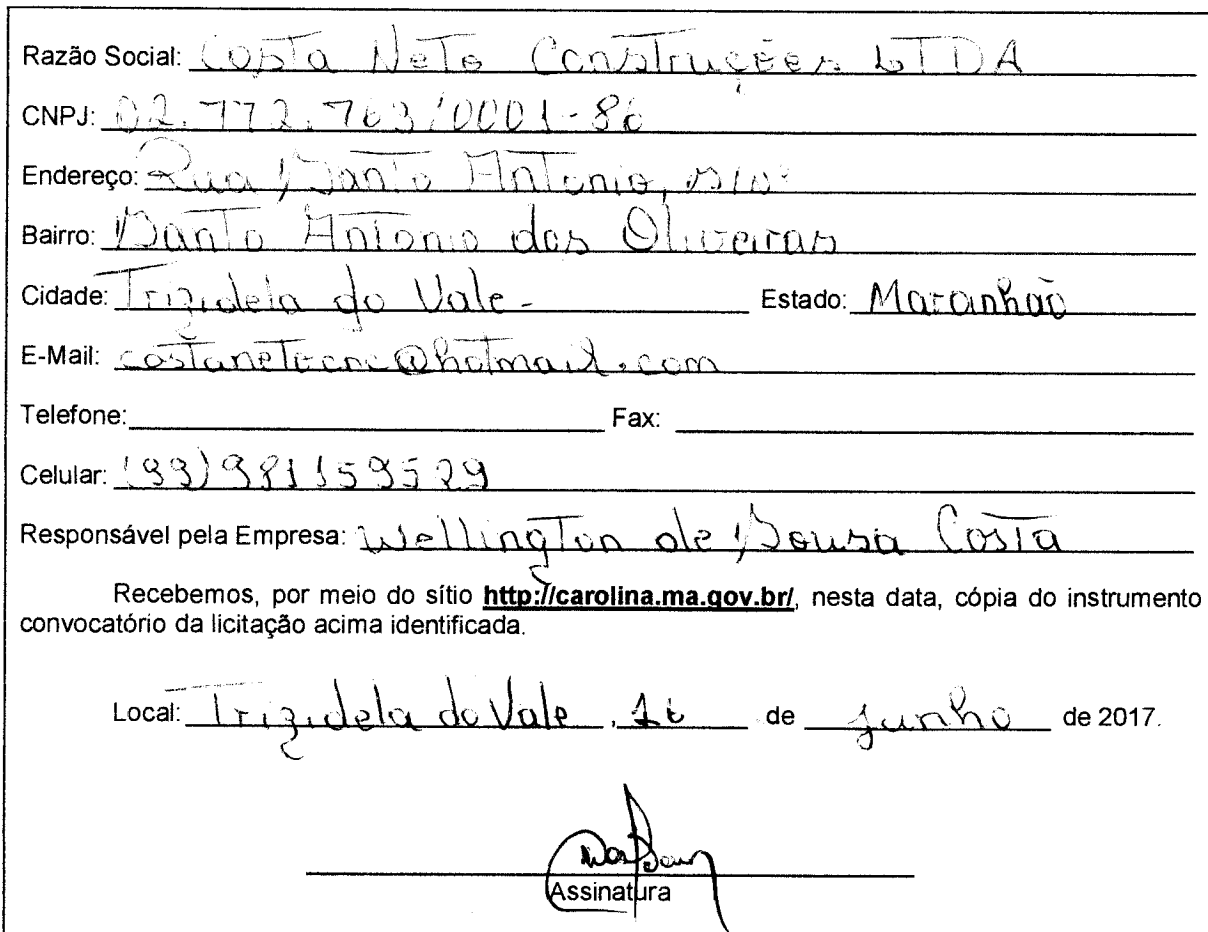 Razão Social: Costa Neto Construções LTDA
CNPJ: 02.772.763/0001-86
Endereço: Rua Santo Antonio, s/nº
Bairro: Santo Antonio dos Oliveiras
Cidade: Trizidela do Vale - Estado: Maranhão
E-Mail: @hotmail.com
Telefone: Fax:
Celular: (99) 981159529
Responsável pela Empresa: Wellington de Sousa Costa
Recebemos, por meio do sítio http://carolina.ma.gov.br/, nesta data, cópia do instrumento
convocatório da licitação acima identificada.
Local: Trizidela do Vale, 16 de junho de 2017.
Assinatura